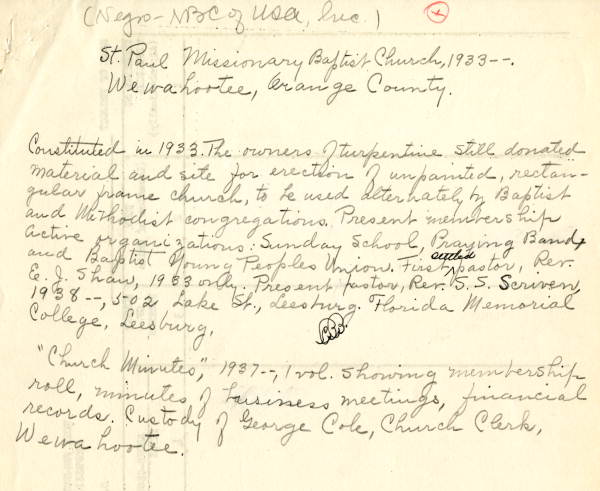 (Negro - NBC of USA, Inc.)
St. Paul Missionary Baptist Church, 1933--.
Wewahootee, Orange County.
Constituted in 1933. The owners of turpentine still donated
material and site for erection of unpainted, rectan-
gular frame church, to be used alternately by Baptist
and Methodist congregations. Present membership
active organizations: Sunday School, Praying Band,
and Baptist Young Peoples Union. First settled pastor, Rev.
E. J. Shaw, 1933 only. Present pastor, Rev. S. S. Scriven,
1938--, 502 Lake St., Leesburg. Florida Memorial
College, Leesburg.
"Church Minutes", 1937--, 1 vol. showing membership
roll, minutes of business meetings, financial
records. Custody of George Cole, Church Clerk,
Wewahootee.